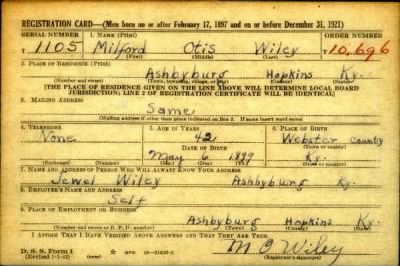 REGISTRATION CARD—(Men born on or after February 17, 1897 and on or before December 31, 1921)
SERIAL NUMBER 1. NAME (Print) ORDER NUMBER
T 1105 Milford Otis Wiley T10,696
(First) (Middle) (Last)
2. PLACE OF RESIDENCE (Print)
Ashbyburg Hopkins Ky.
(Number and street) (Town, township, village, or city) (County) (State)
[THE PLACE OF RESIDENCE GIVEN ON THE LINE ABOVE WILL DETERMINE LOCAL BOARD
JURISDICTION; LINE 2 OF REGISTRATION CERTIFICATE WILL BE IDENTICAL]
3. MAILING ADDRESS
Same
(Mailing address if other than place indicated on line 2. If same insert word same)
4. TELEPHONE 5. AGE IN YEARS 6. PLACE OF BIRTH
None 42 Webster County
DATE OF BIRTH (Town or county)
May 6 1899 Ky.
(Exchange) (Number) (Mo.) (Day) (Yr.) (State or country)
7. NAME AND ADDRESS OF PERSON WHO WILL ALWAYS KNOW YOUR ADDRESS
Jewel Wiley Ashbyburg Ky.
8. EMPLOYER'S NAME AND ADDRESS
Self
9. PLACE OF EMPLOYMENT OR BUSINESS
Ashbyburg Hopkins Ky.
(Number and street or R. F. D. number) (Town) (County) (State)
I AFFIRM THAT I HAVE VERIFIED ABOVE ANSWERS AND THAT THEY ARE TRUE.
D. S. S. Form 1
M O Wiley